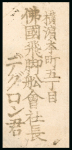 横濱本町五丁目
佛國飛脚船會社長
デグロン吾